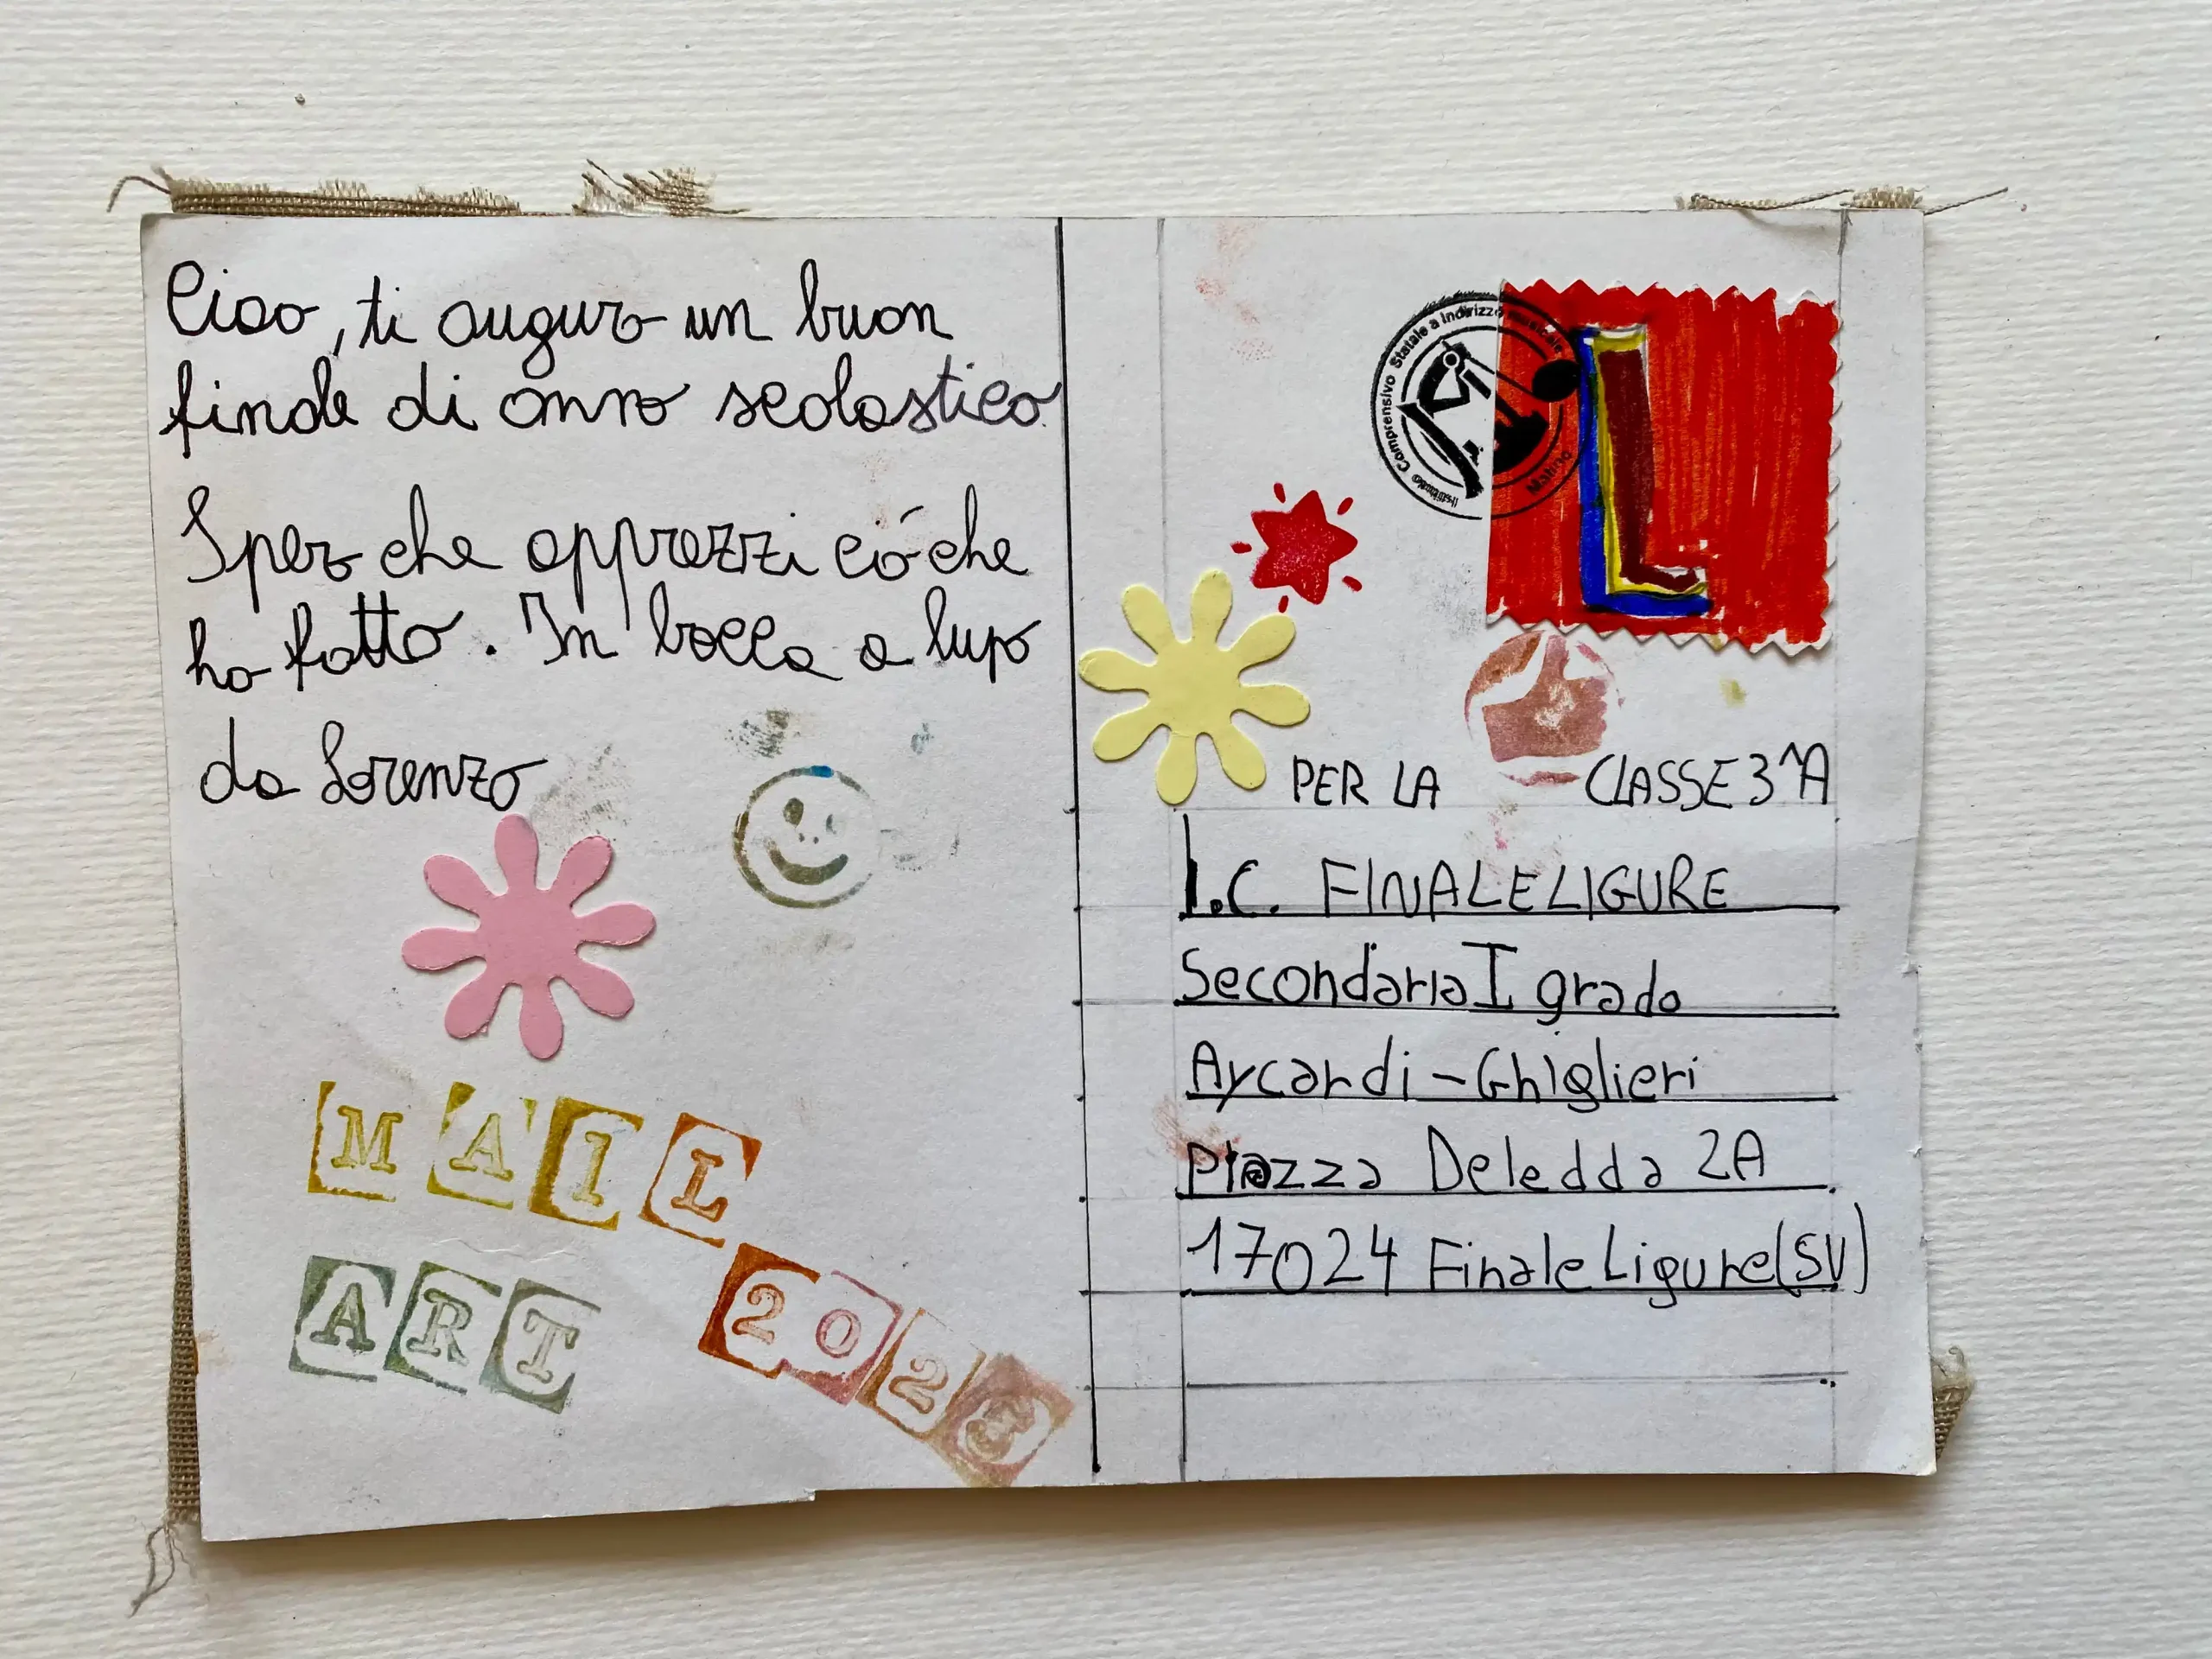 Ciao, ti auguro un buon
finale di anno scolastico.
Spero che apprezzi ció che
ho fatto. In bocca a lupo
da Lorenzo
MAIL
ART
2023
Istituto Comprensivo Statale a Indirizzo Musicale
Matino
L
PER LA CLASSE 3^A
I.C. FINALE LIGURE
Secondaria I grado
Aycardi - Ghiglieri
Piazza Deledda 2A
17024 Finale Ligure (SV)